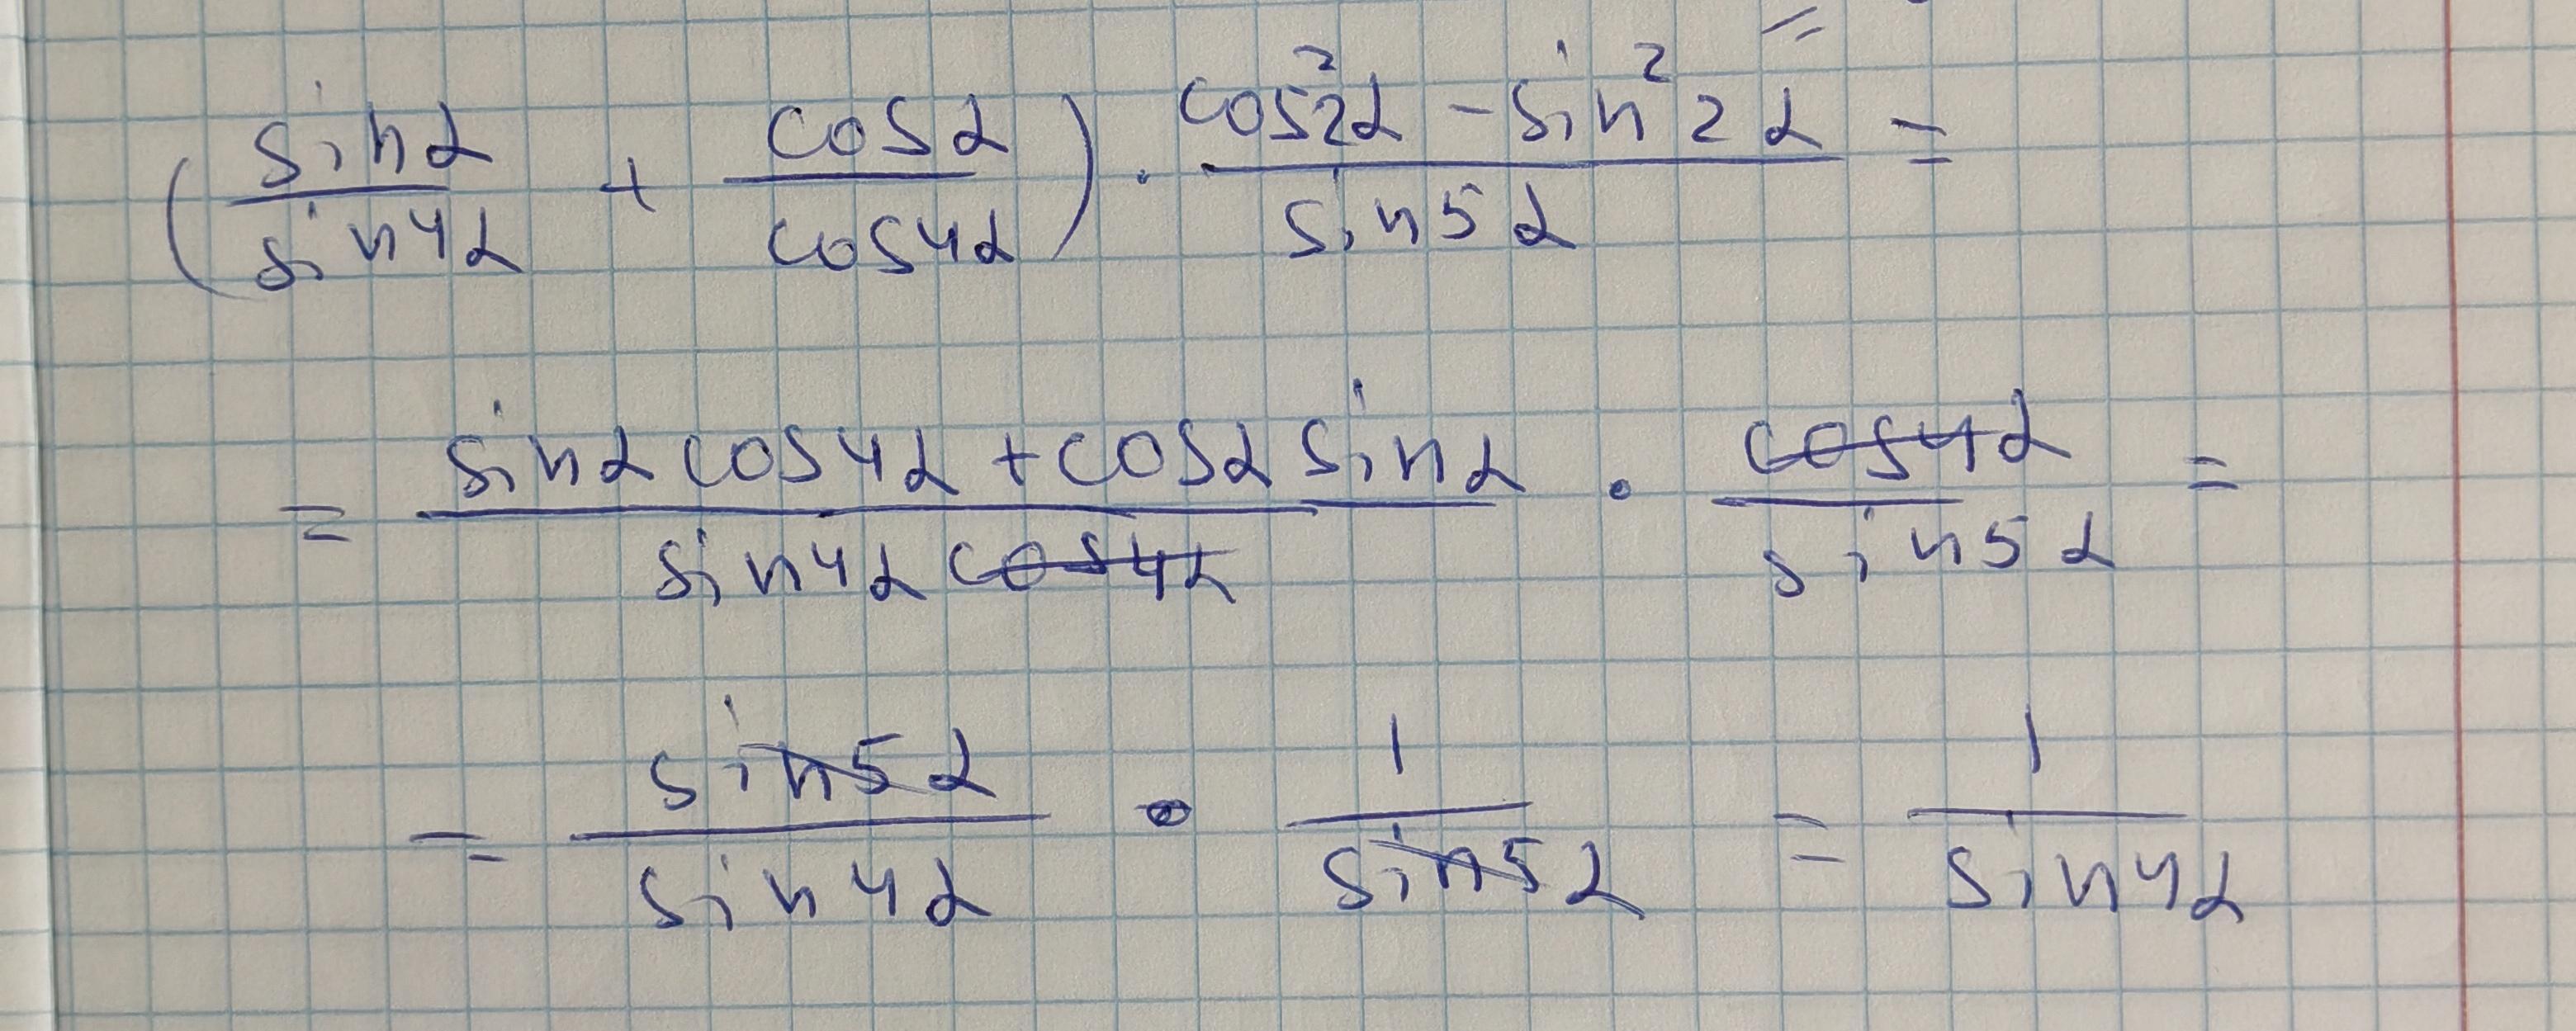 (sinα/sin4α + cosα/cos4α) · (cos²2α - sin²2α)/sin5α =
= (sinα cos4α + cosα sinα)/(sin4α cos4α) · cos4α/sin5α =
= sin5α/sin4α · 1/sin5α = 1/sin4α